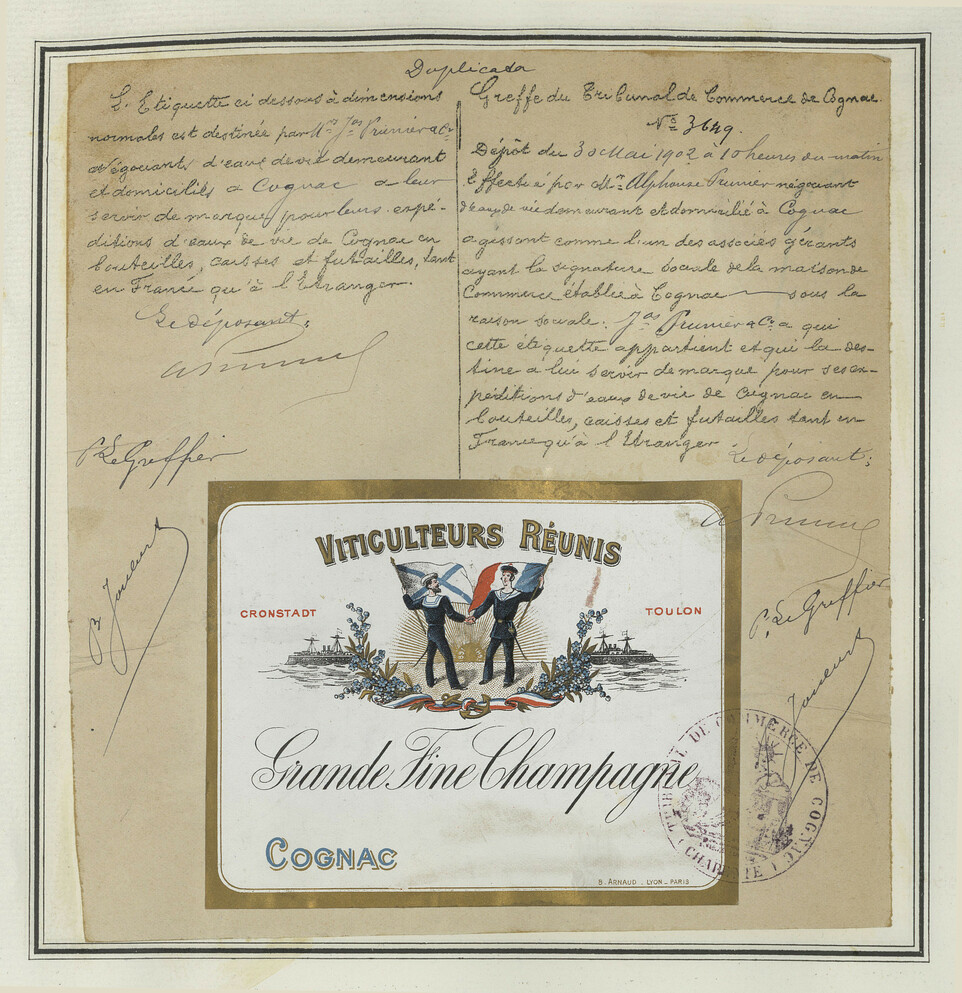 Duplicata
L'Etiquette ci dessous à dimensions
normales est destinée par Mrs Jas Prunier & Co
négociants d'eaux de vie demeurant
et domiciliés à Cognac à leur
servir de marque pour leurs expé-
ditions d'eaux de vie de Cognac en
bouteilles, caisses et futailles, tant
en France qu'à l'Etranger.
Le déposant:
A Prunier
P. Le Greffier
Greffe du Tribunal de Commerce de Cognac.
No 3649.
Dépôt du 30 Mai 1902 à 10 heures du matin
Effectué par Mr Alphonse Prunier négociant
d'eaux de vie demeurant et domicilié à Cognac
agissant comme l'un des associés gérants
ayant la signature sociale de la maison de
Commerce établie à Cognac sous la
raison sociale: Jas Prunier & Co à qui
cette etiquette appartient et qui la des-
tine à lui servir de marque pour ses ex-
péditions d'eaux de vie de Cognac en
bouteilles, caisses et futailles tant en
France qu'à l'Etranger
Le déposant:
A Prunier
P. Le Greffier
VITICULTEURS RÉUNIS
CRONSTADT
TOULON
Grande Fine Champagne
COGNAC
B. ARNAUD . LYON - PARIS
TRIBUNAL DE COMMERCE DE COGNAC
(CHARENTE)